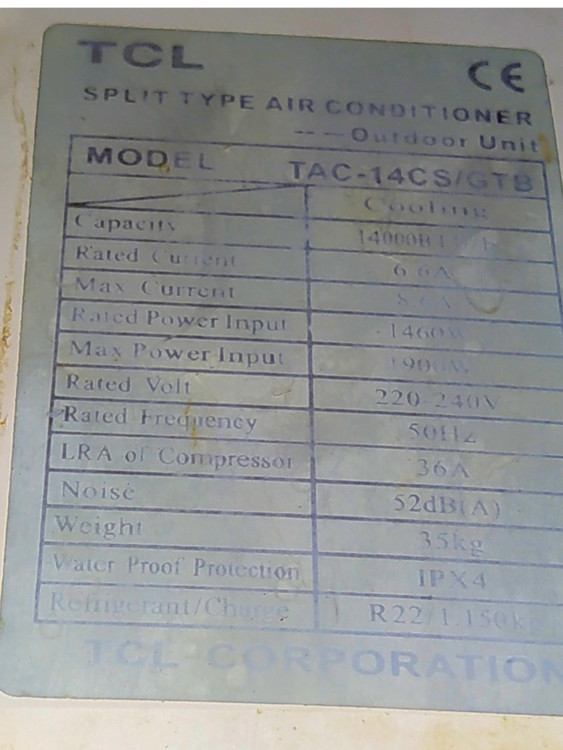 TCL
CE
SPLIT TYPE AIR CONDITIONER
-- — Outdoor Unit
MODEL TAC-14CS/GTB
Cooling
Capacity 14000BTU/h
Rated Current 6.6A
Max Current
Rated Power Input 1460W
Max Power Input 1900W
Rated Volt 220-240V
Rated Frequency 50Hz
LRA of Compressor 36A
Noise 52dB(A)
Weight 35kg
Water Proof Protection IPX4
Refrigerant/Charge R22/1.150k
TCL CORPORATION